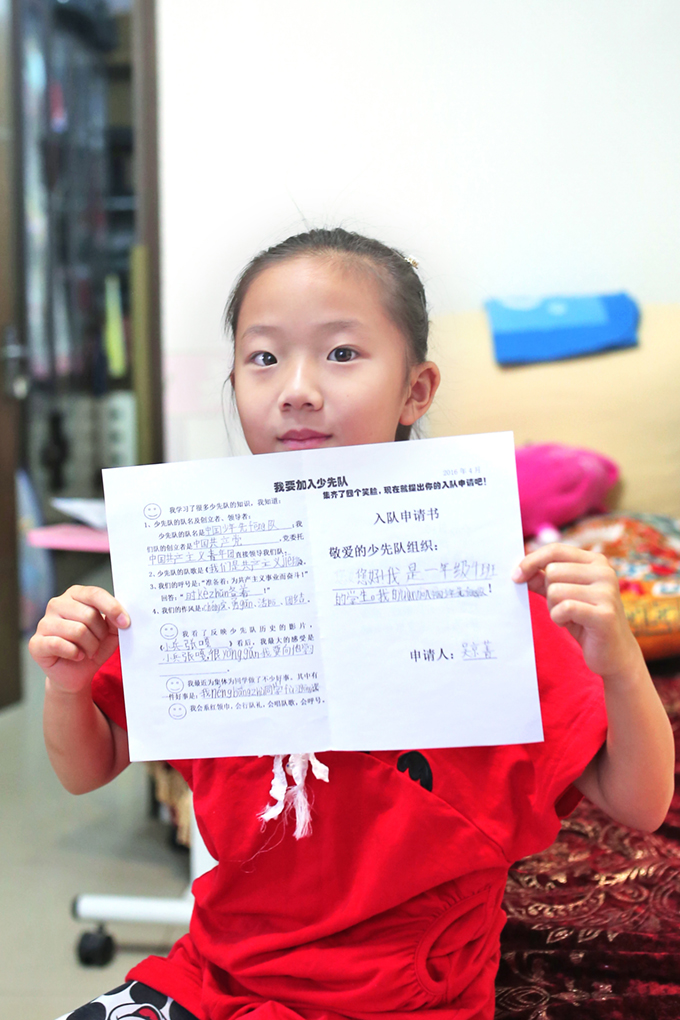 我要加入少先队
2018年4月
集齐了四个笑脸，现在就提出你的入队申请吧！
我学习了很多少先队的知识，我知道：
1、少先队的队名及创立者、领导者：
少先队的队名是中国少年先锋队，我
们队的创立者是中国共产党，党委托
中国共产主义青年团直接领导我们队。
2、少先队的队歌是《我们是共产主义接班人》
3、我们的呼号是："准备着：为共产主义事业而奋斗！"
回答："时kè zhǔn备着！"
4、我们的作风是：
我看了反映少先队历史的影片，
《小兵张嘎》看后，我最大的感受是
小兵张嘎很yǒng gǎn我要向他学
我最近为集体为同学做了不少好事，其中有
一件好事是：我
我会系红领巾，会行队礼，会唱队歌，会呼号。
入队申请书
敬爱的少先队组织：
您好！我是一年级
的学生。我
申请人：